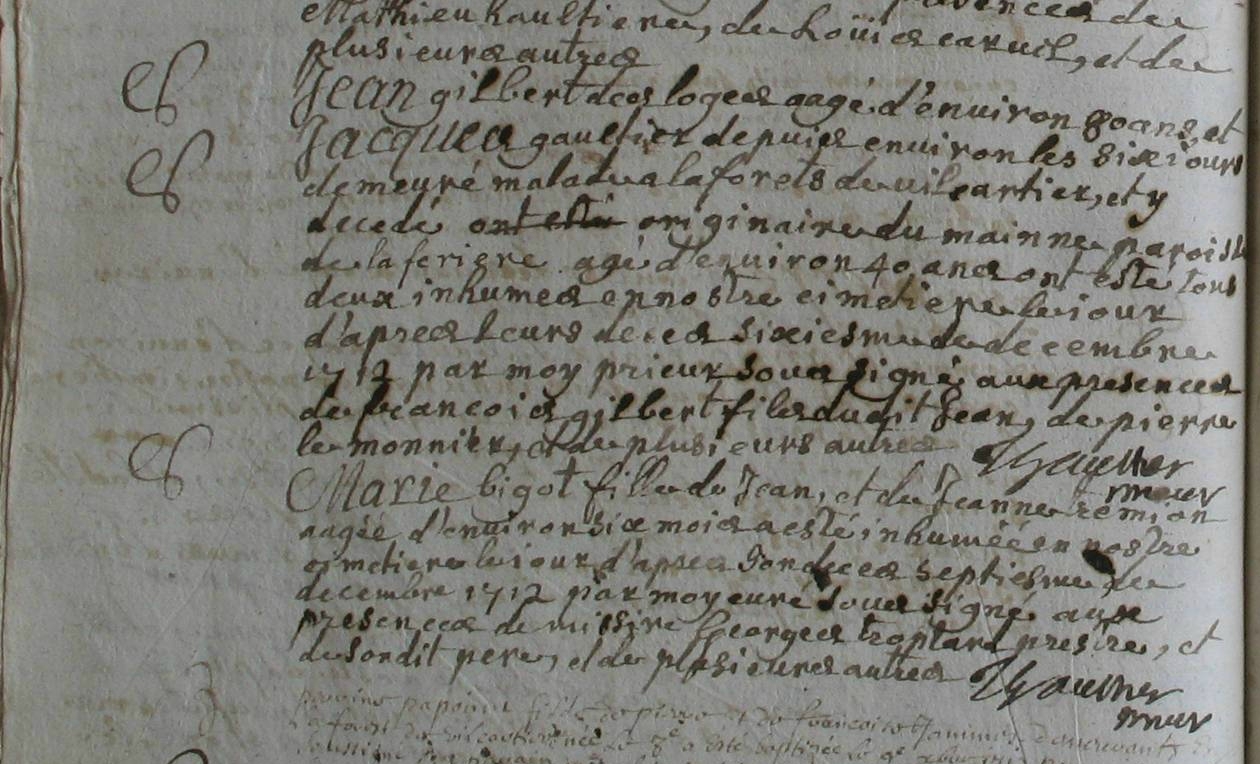 Mathieu haultiere, de Loüis caruel, et de
plusieurs autres
S Jean gilbert des loges aagé d'enuiron 80 ans, et
S Jacques gaultier depuis enuiron les six iours
demeuré malade a la forets de uilcartier, et y
decedé ont esté originaire du mainne paroisse
de la feriere agé d'enuiron 40 ans ont esté tous
deux inhumes en nostre cimetiere le iour
d'apres leurs deces sixiesme de decembre
1712 par moy prieur sous signé aux presences
de francois gilbert fils dudit Jean, de pierre
le monnier, et de plusieurs autres Gaultier
prieur
S Marie bigot fille de Jean, et de Jeanne remion
aagée d'enuiron six mois a esté inhumée en nostre
cimetiere le iour d'apres son deces septiesme de
decembre 1712 par moy curé sous signé aux
presences de missire Georges troptard prestre, et
de sondit pere, et de plusieures autres Gaultier
prieur
papoin fille de pierre et de francoise
a esté baptizée le 9e